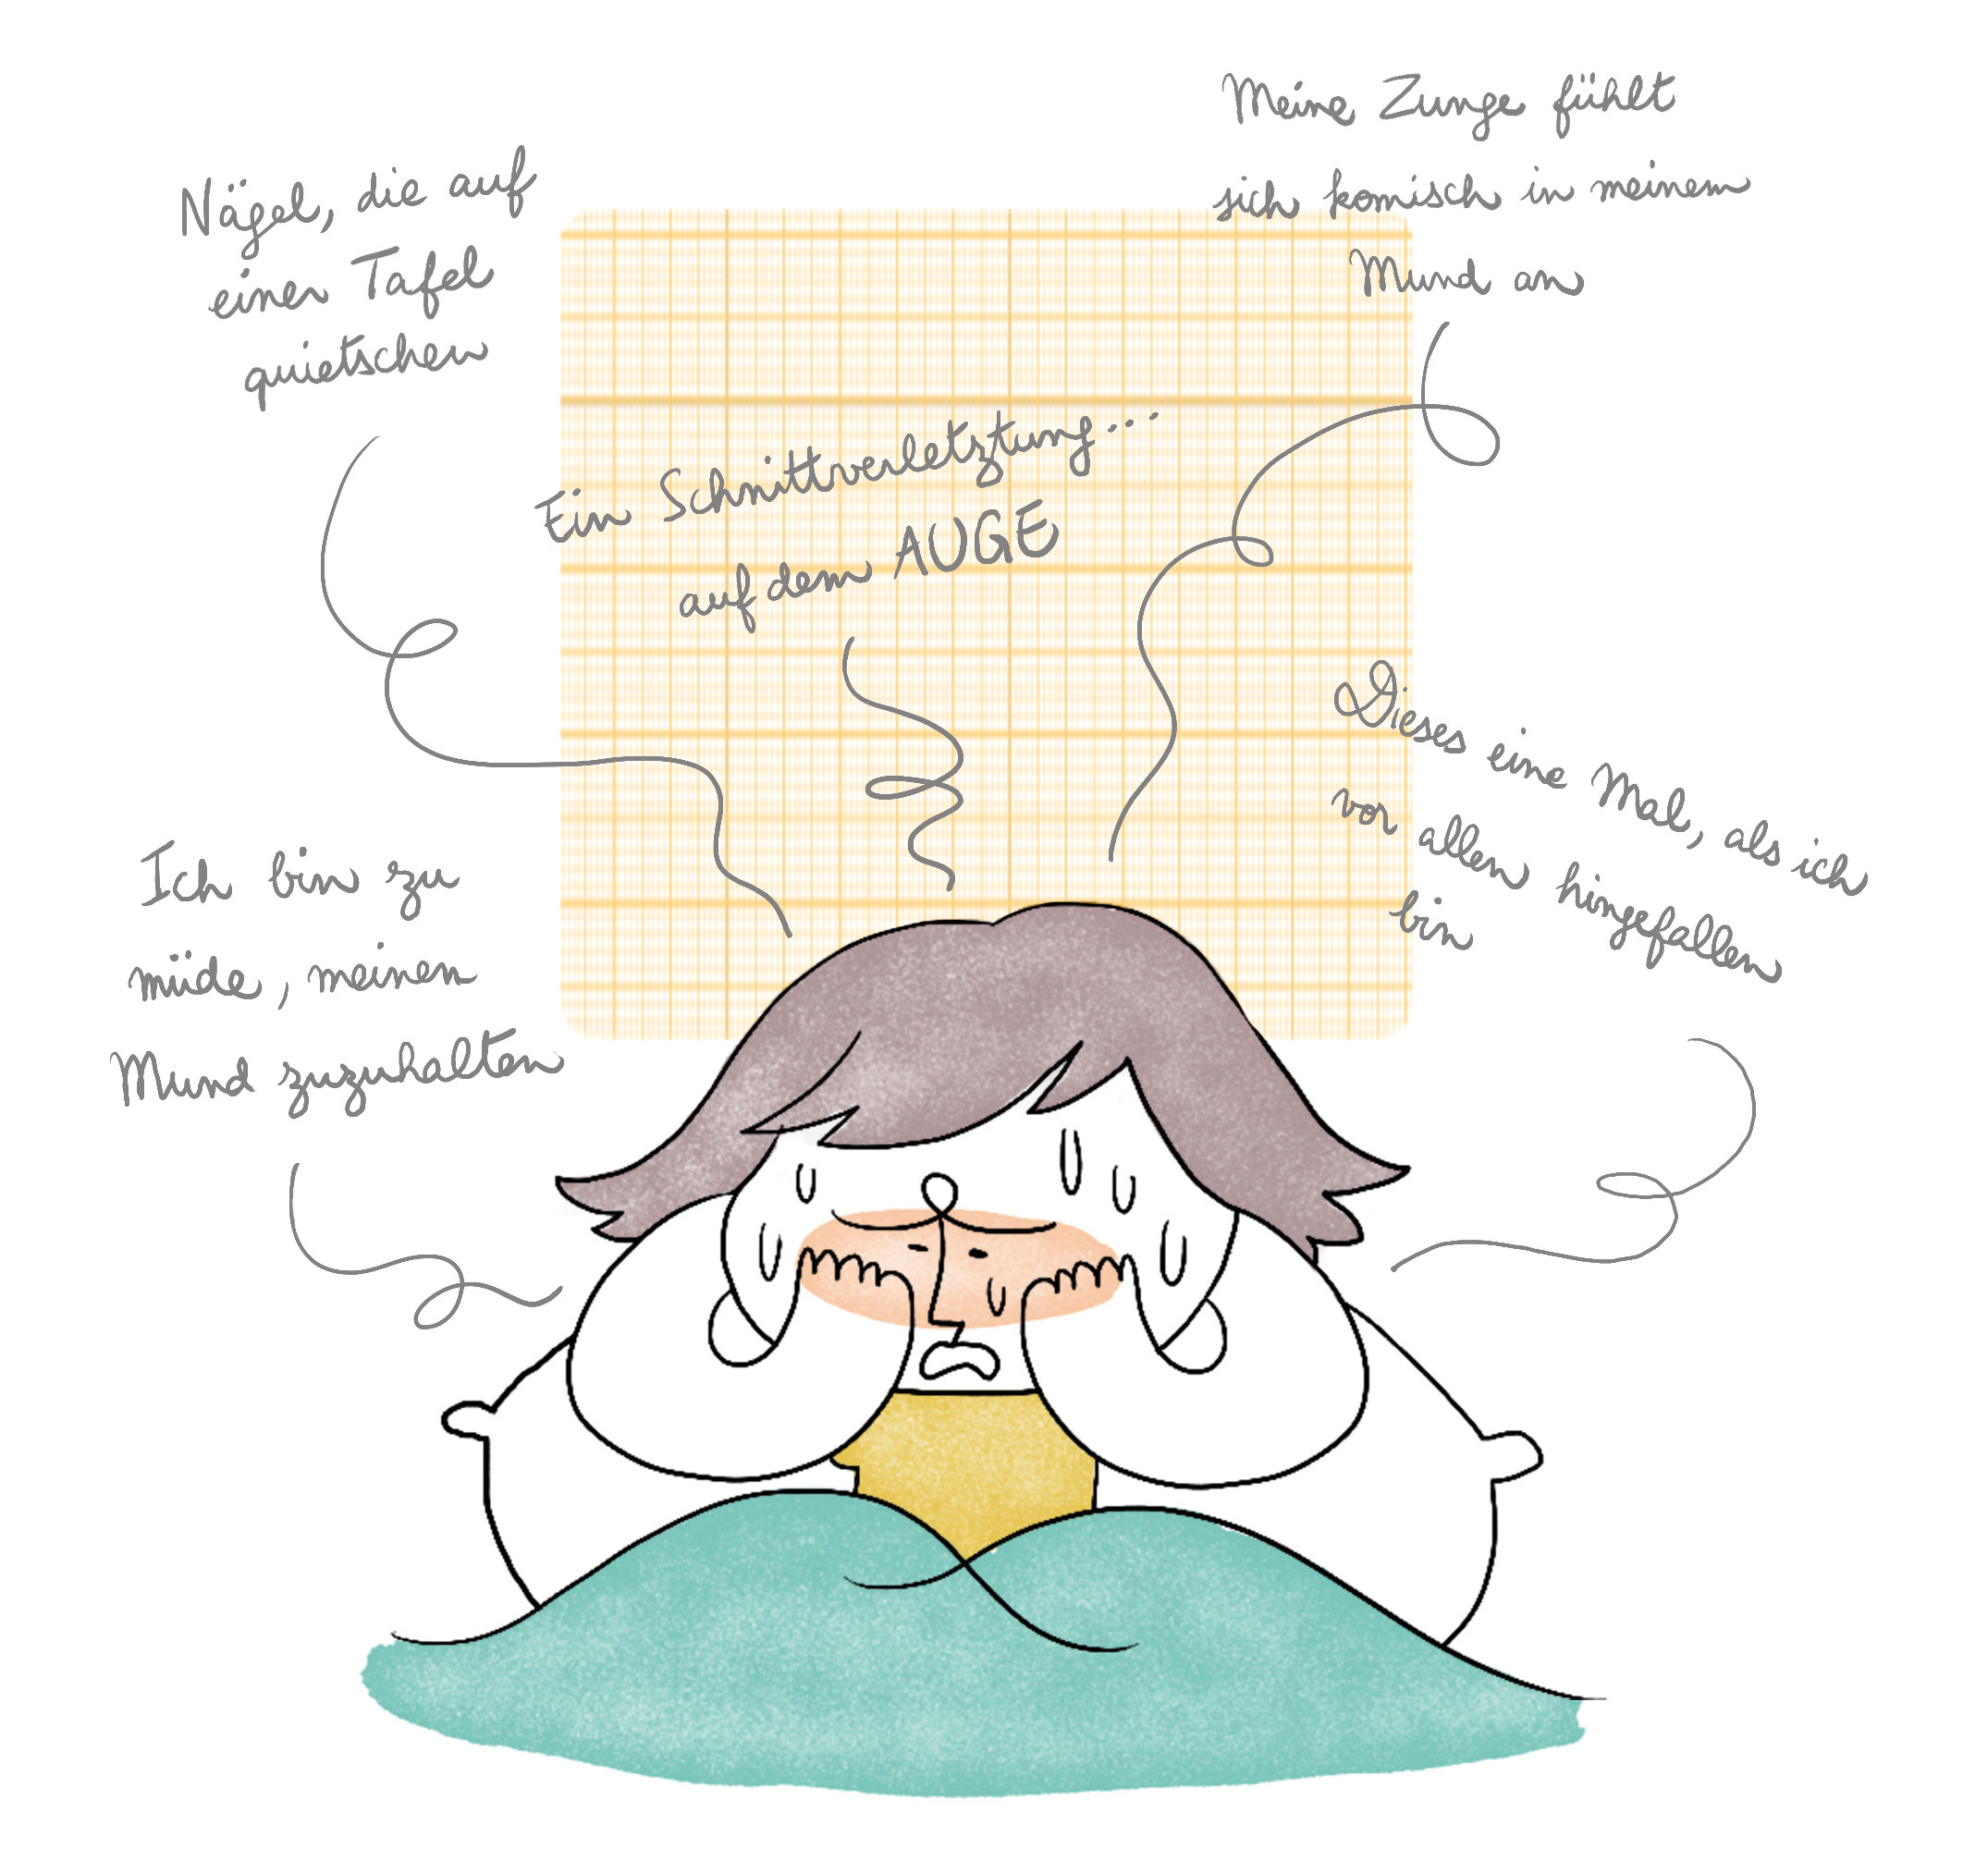 Nägel, die auf
einer Tafel
quietschen
Meine Zunge fühlt
sich komisch in meinem
Mund an
Ein Schnittverletztung...
auf dem AUGE
Dieses eine Mal, als ich
vor allen hingefallen
bin
Ich bin zu
müde, meinen
Mund zuzuhalten